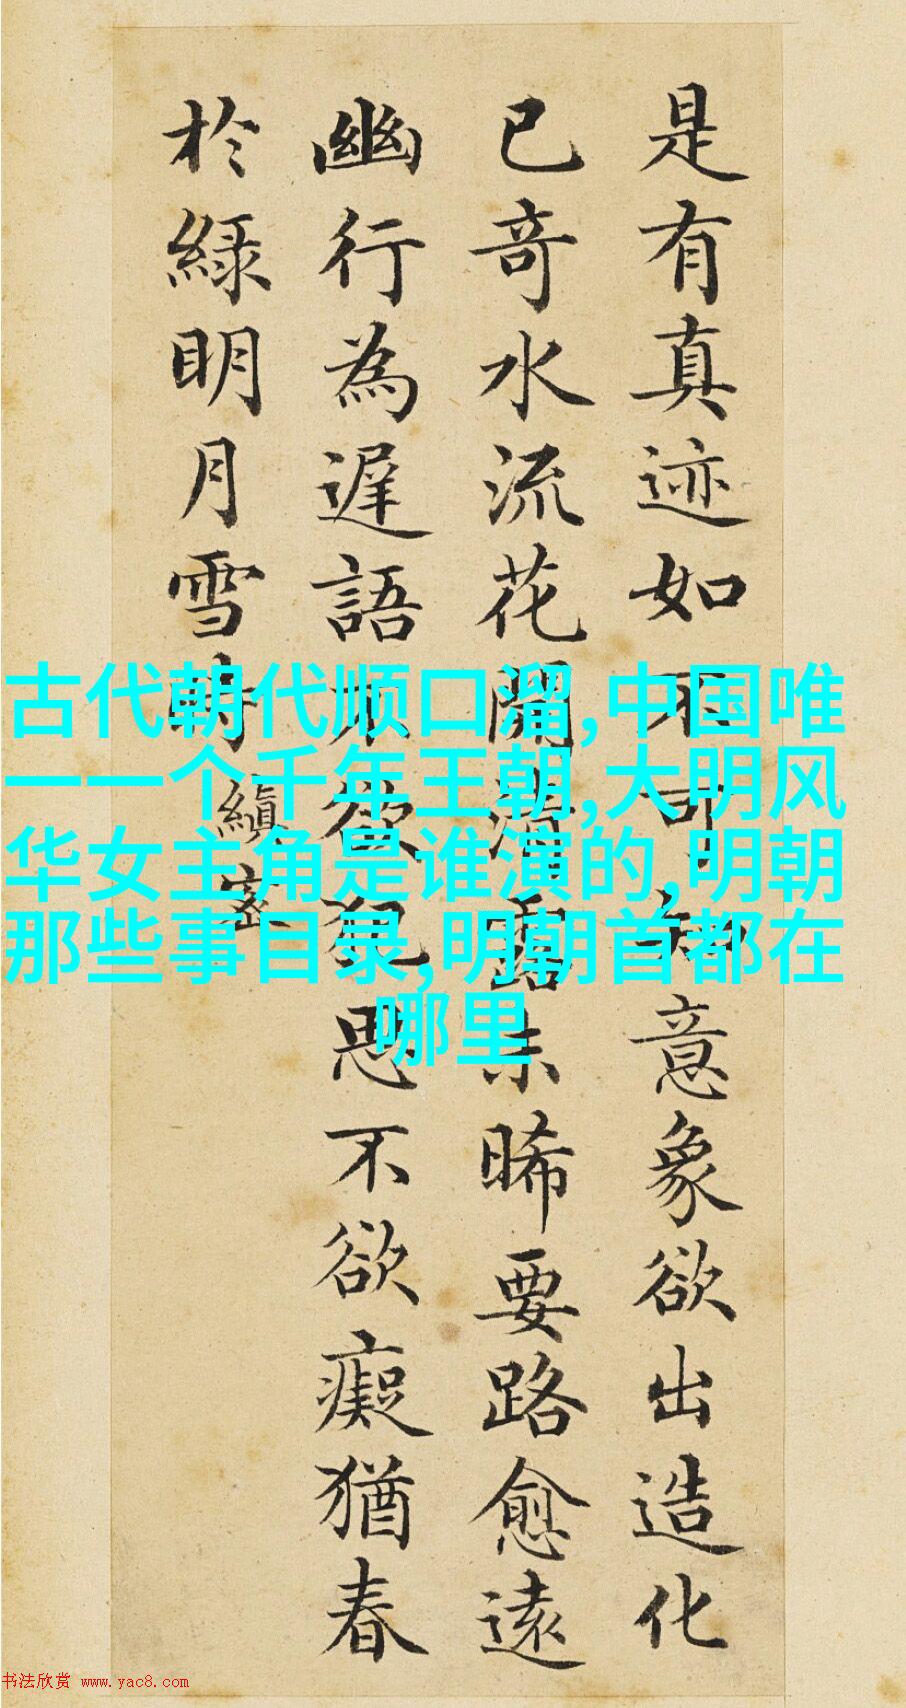 是有真迹如不可知意象欲出造化
已奇水流花開清露未晞要路愈遠
幽行為遲語不欲犯思不欲癡猶春
於綠明月雪時
縝密
古代朝代顺口溜,中国唯
一一个千年王朝,大明风
华女主角是谁演的,明朝
那些事目录,明朝首都在
哪里
书法欣赏 www.yac8.com